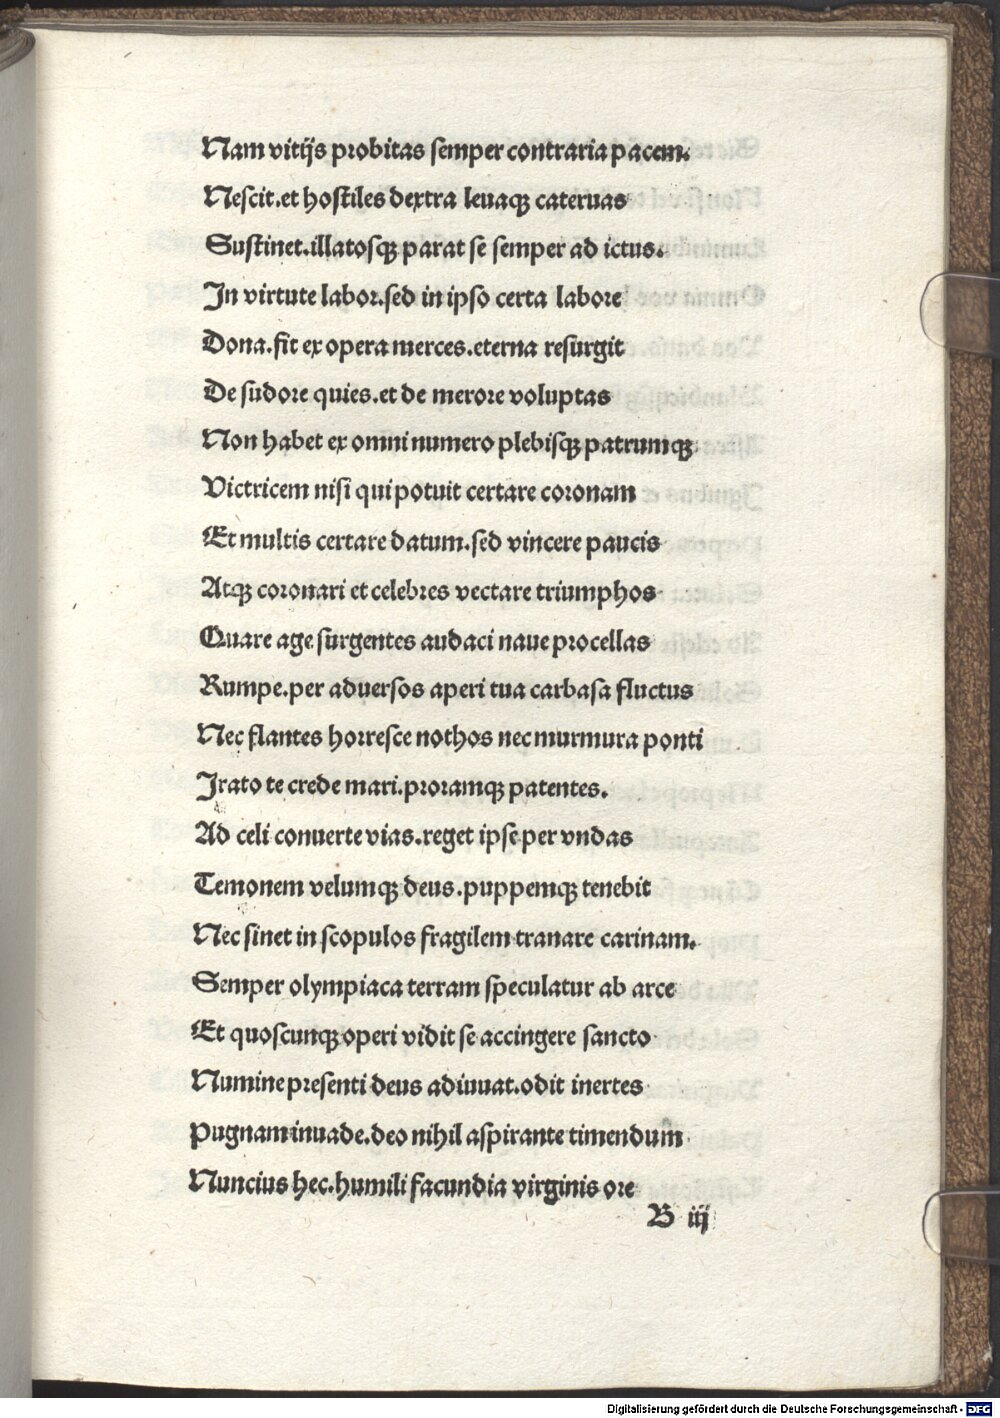 Nam vitijs probitas semper contraria pacem.
Nescit.et hostiles dextra leuaqꝫ cateruas
Sustinet.illatosqꝫ parat se semper ad ictus.
In virtute labor.sed in ipso certa labore
Dona.fit ex opera merces.eterna resurgit
De sudore quies.et de merore voluptas
Non habet ex omni numero plebisqꝫ patrumqꝫ
Victricem nisi qui potuit certare coronam
Et multis certare datum.sed vincere paucis
Atqꝫ coronari et celebres vectare triumphos
Quare age surgentes audaci naue procellas
Rumpe.per aduersos aperi tua carbasa fluctus
Nec flantes horresce nothos nec murmura ponti
Irato te crede mari.proramqꝫ patentes.
Ad celi conuerte vias.reget ipse per vndas
Temonem velumqꝫ deus.puppemqꝫ tenebit
Nec sinet in scopulos fragilem tranare carinam.
Semper olympiaca terram speculatur ab arce
Et quoscunqꝫ operi vidit se accingere sancto
Numine presenti deus adiuuat.odit inertes
Pugnam inuade.deo nihil aspirante timendum
Nuncius hec.humili facundia virginis ore
B iij
Digitalisierung gefördert durch die Deutsche Forschungsgemeinschaft - DFG